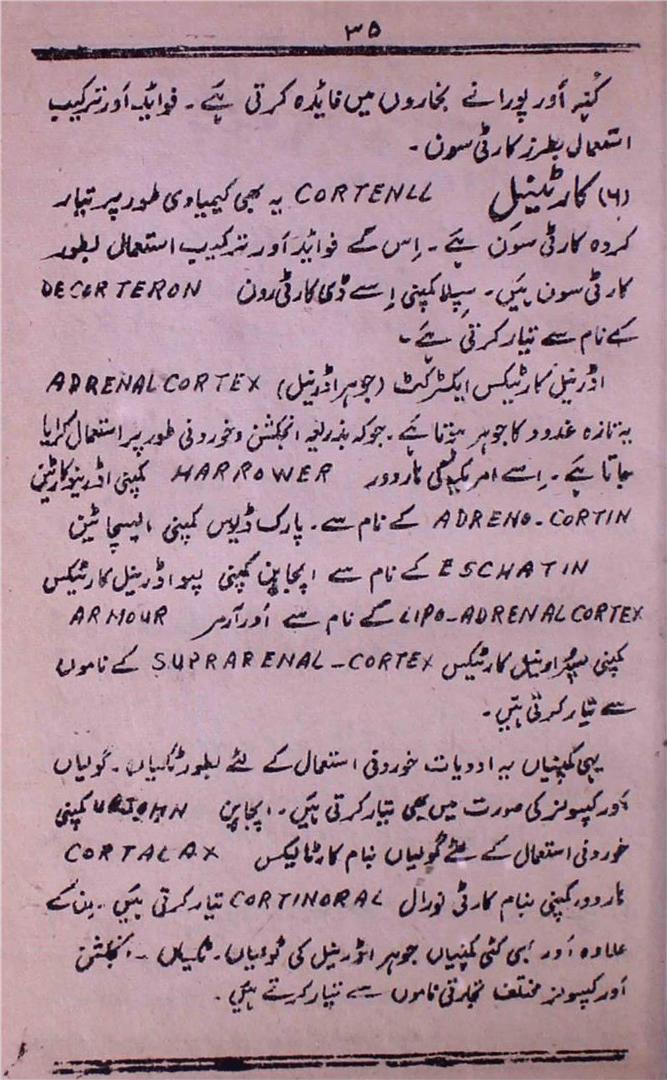 ۳۵
کُہنہ اَور پورانے بخاروں میں فائدہ کرتی ہَے۔ فوائد اَور ترکیب
استعمال بطرز کارٹی سون۔
(۶) کارٹینیل CORTENLL یہ بھی کیمیاوی طور پر تیار
کردہ کارٹی سوَن ہَے۔ اِس کے فوائد اَور ترکیب استعمال بطور
کارٹی سون ہَیں۔ سِپلا کمپنی اِسے ڈی کارٹی رون DECORTERON
کے نام سے تیار کرتی ہَے۔
اڈرنیل کارٹیکس ایکٹرکٹ (جوہر اڈرنیل) ADRENAL CORTEX
یہ تازہ غدود کا جوہر ہوتا ہَے۔ جو کہ بذریعہ انجکشن و خورونی طور پر استعمال کرایا
جاتا ہَے۔ اِسے امریکہ کی ہاروور HARROWER کمپنی اڈرینوکارٹین
ADRENO-CORTIN کے نام سے۔ پارک ڈیوس کمپنی ایسچاٹین
ESCHATIN کے نام سے اپجاہن کمپنی لیپو اڈرنیل کارٹیکس
LIPO-ADRENAL CORTEX کے نام سے اَور آرمر ARMOUR
کمپنی سپرارینیل کارٹیکس SUPRARENAL-CORTEX کے ناموں
سے تیار کرتی ہَیں۔
یہی کمپنیاں یہ ادویات خورونی استعمال کے لئے بطور ٹکیاں۔ گولیاں
اَور کیپسولز کی صورت میں بھی تیار کرتی ہَیں۔ اپجاہن UPJOHN کمپنی
خورونی استعمال کے لئے گولیاں بنام کارٹالیکس CORTALAX
ہاروور کمپنی بنام کارٹی نورال CORTINORAL تیار کرتی ہَیں۔ اِن کے
علاوہ اَور بھی کئی کمپنیاں جوہر اڈرنیل کی گولیاں۔ ٹکیاں۔ انجکشن
اَور کیپسولز مختلف تجارتی ناموں سے تیار کرتے ہَیں۔